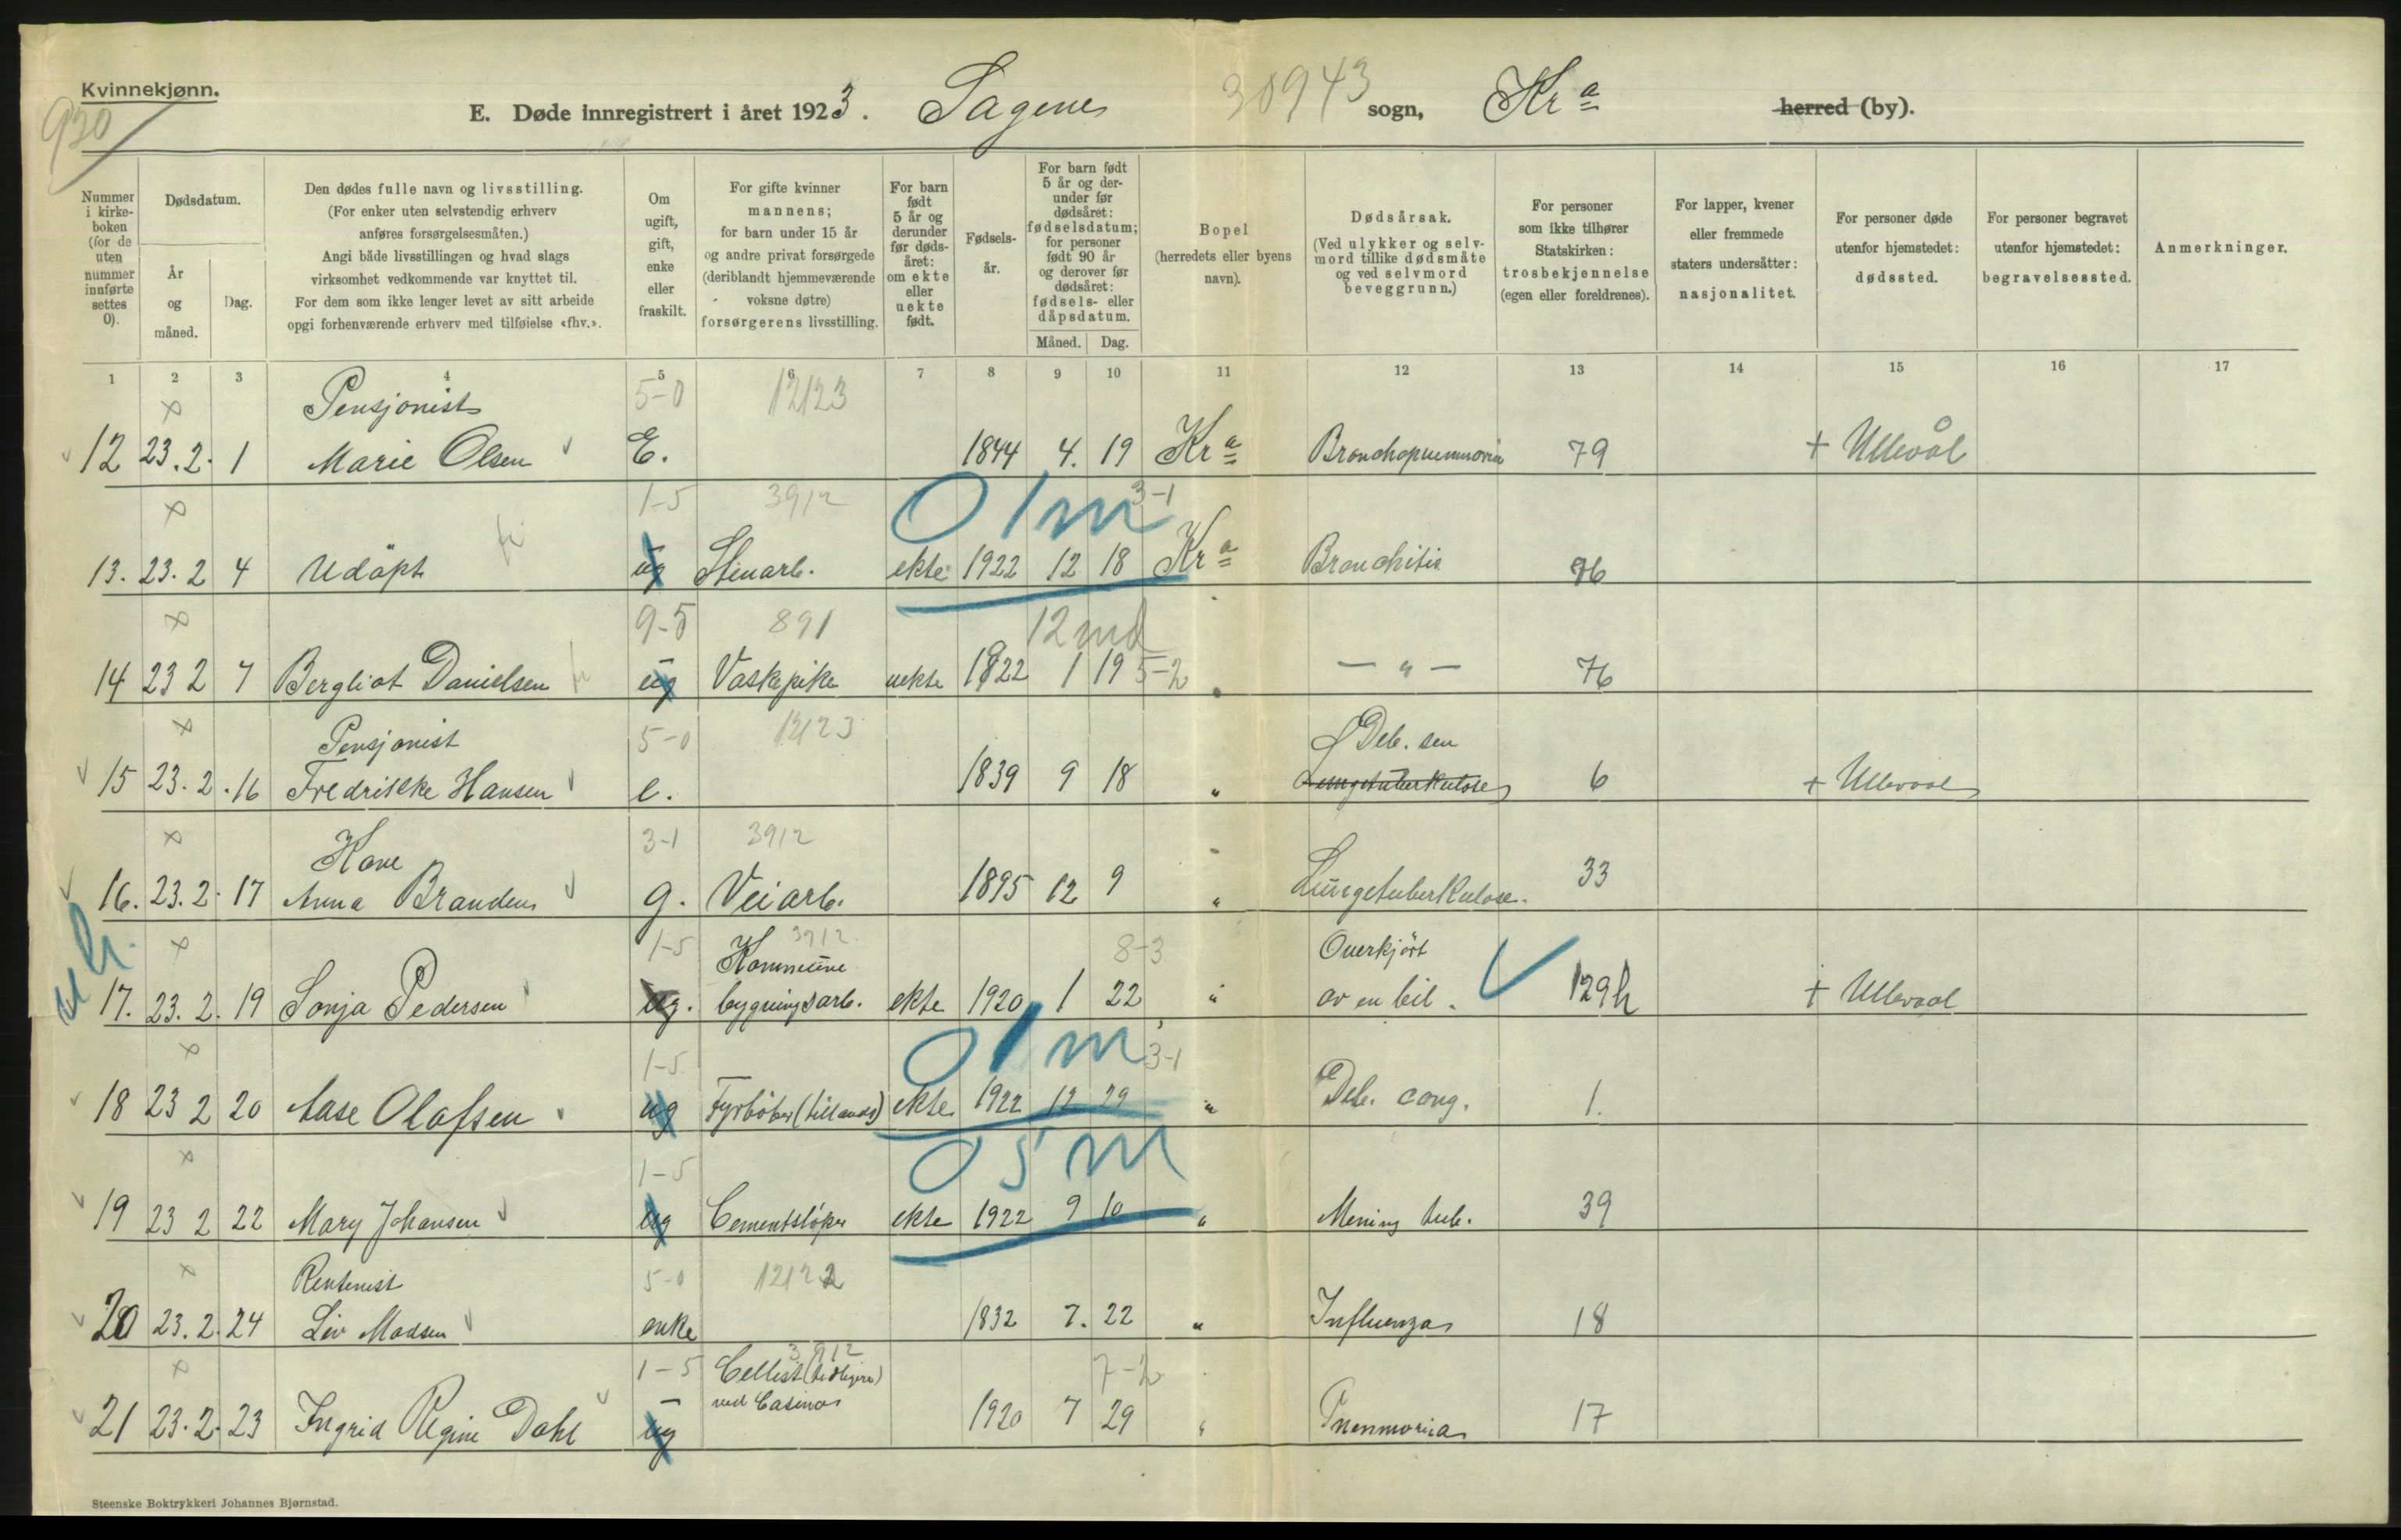 Kvinnekjønn.
920
E. Døde innregistrert i året 1923. Sagenes 30943 sogn, Kr a herred (by).
Nummer i kirke-boken (for de uten nummer innførte settes 0).
Dødsdatum.
År og måned.
Dag.
Den dødes fulle navn og livsstilling.
(For enker uten selvstendig erhverv anføres forsørgelsesmåten.)
Angi både livsstillingen og hvad slags virksomhet vedkommende var knyttet til.
For dem som ikke lenger levet av sitt arbeide opgi forhenværende erhverv med tilføielse «fhv.».
Om ugift, gift, enke eller fraskilt.
For gifte kvinner mannens; for barn under 15 år og andre privat forsørgede (deriblandt hjemmeværende voksne døtre) forsørgerens livsstilling.
For barn født 5 år og derunder før døds-året: om ekte eller uekte født.
Fødsels-år.
For barn født 5 år og der-under før dødsåret: fødselsdatum; for personer født 90 år og derover før dødsåret: fødsels- eller dåpsdatum.
Måned. Dag.
Bopel (herredets eller byens navn).
Dødsårsak.
(Ved ulykker og selv-mord tillike dødsmåte og ved selvmord beveggrunn.)
For personer som ikke tilhører Statskirken: trosbekjennelse (egen eller foreldrenes).
For lapper, kvener eller fremmede staters undersåtter: nasjonalitet.
For personer døde utenfor hjemstedet: dødssted.
For personer begravet utenfor hjemstedet: begravelsessted.
Anmerkninger.
1 2 3 4 5 6 7 8 9 10 11 12 13 14 15 16 17
x Pensjonist 5-0 12123
12 23.2. 1 Marie Olsen E. 1844 4. 19 Kr a Bronchopneumonia 79 + Ullevål
x 1-5 3912 01m 3-1
13. 23. 2 4 Udöpt ug Stenarb. ekte 1922 12 18 Kr a Bronchitis 76
x 9-5 891 12 md
14 23 2 7 Bergliot Danielsen ug Vaskepike uekte 1922 1 19 5-2 " — " — 76
x Pensjonist 5-0 12123 Deb. sen
15 23. 2. 16 Fredrikke Hansen e. 1839 9 18 " Lungetuberkulose 6 + Ullevaal
x Kone 3-1 3912
16. 23. 2. 17 Anna Branden g. Veiarb. 1895 12 9 " Lungetuberkulose. 33
x 1-5 3912. Kommune 8-3 Overkjört
17. 23. 2. 19 Sonja Pedersen ug. bygningsarb. ekte 1920 1 22 " av en bil. 129h + Ullevaal
x 1-5 01m 3-1
18 23 2 20 Aase Olafsen ug Fyrböter (tillands) ekte 1922 12 29 " Deb. cong. 1.
x 1-5 05m
19 23 2 22 Mary Johansen ug Cementstöper ekte 1922 9 10 " Mening tub. 39
x Rentenist 5-0 12122
20 23. 2. 24 Liv Madsen enke 1832 7. 22 " Influenza 18
x 1-5 3912 Cellist (tidligere) 7-2
ved Casino
21 23. 2. 23 Ingrid Regine Dahl ug 1920 7 29 " Pnenmonia 17
Steenske Boktrykkeri Johannes Bjørnstad.